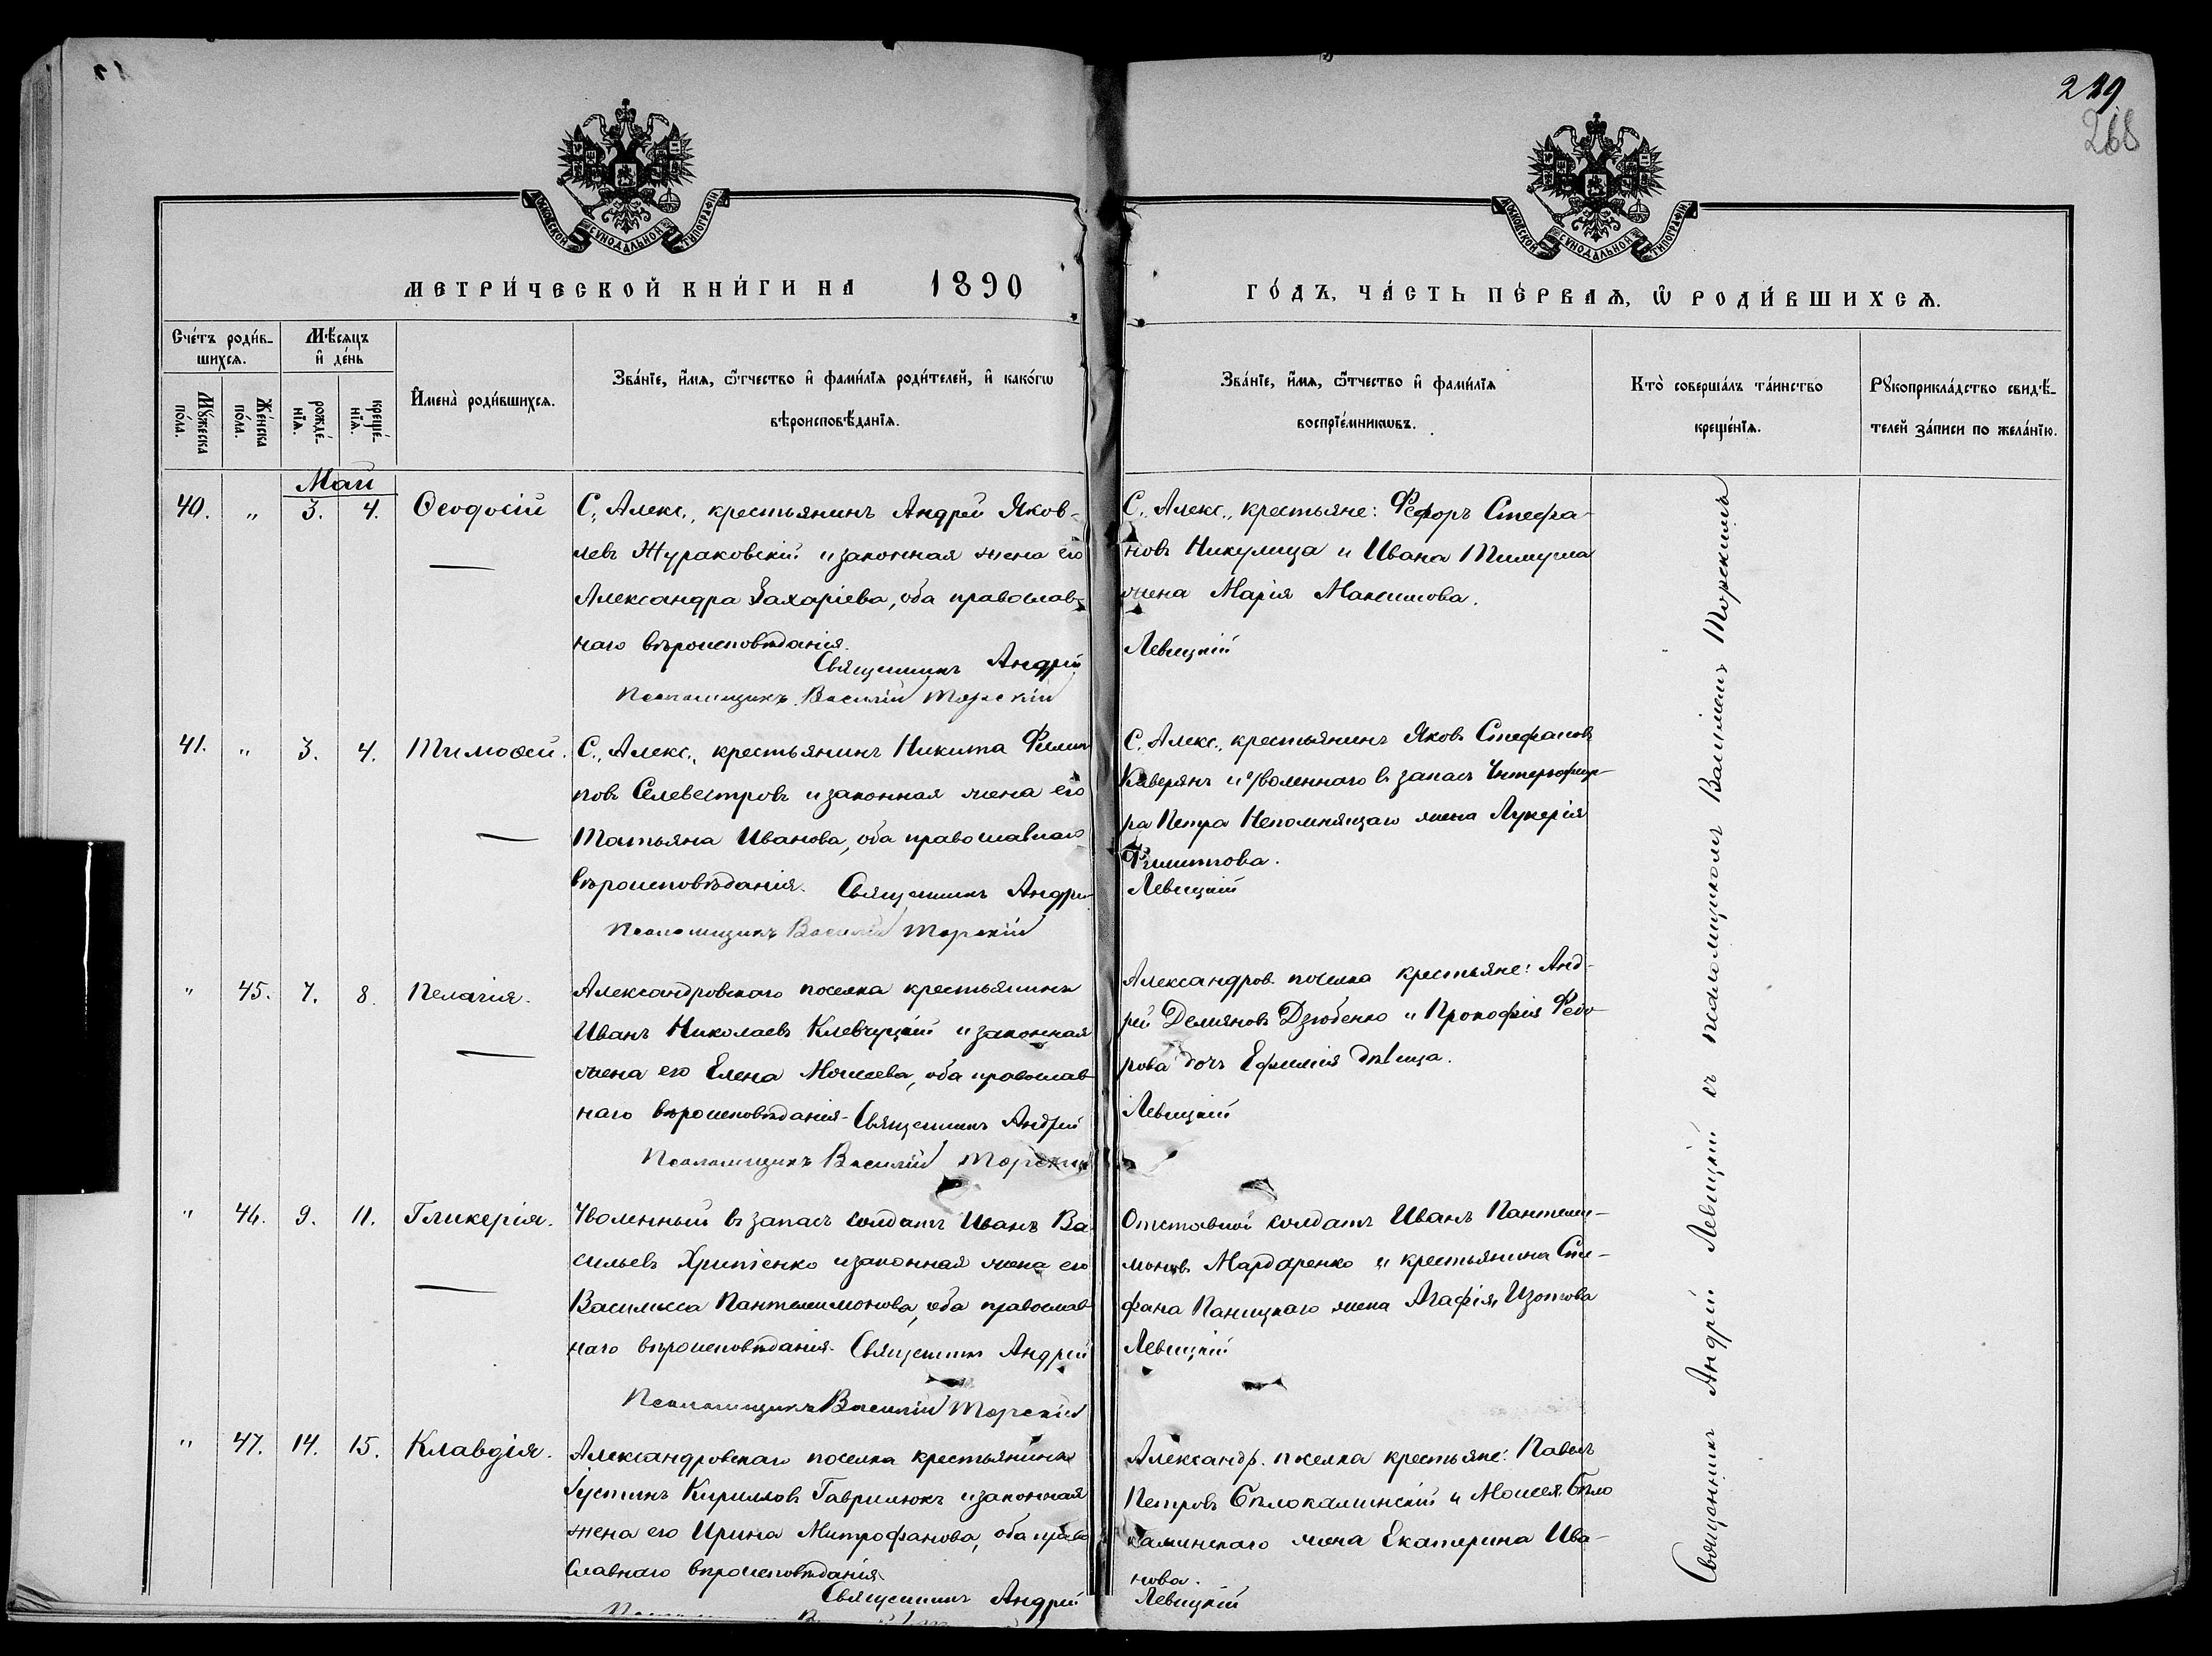 219
268
МОСКОВСКОЙ СѴНОДАЛЬНОЙ ТИПОГРАФІИ
МОСКОВСКОЙ СѴНОДАЛЬНОЙ ТИПОГРАФІИ
МЕТРИ́ЧЕСКОЙ КНИ́ГИ НА 1890
ГО́ДЪ, ЧА́СТЬ ПЕ́РВАѦ, Ѡ РОДИ́ВШИХСѦ.
Сче́тъ роди́в-
шихсѧ.
Мꙋ́жеска
по́ла.
Же́нска
по́ла.
Мѣ́сѧцъ
и҆ де́нь
рожде́-
нїѧ.
креще́-
нїѧ.
И҆мена̀ роди́вшихсѧ.
Зва́нїе, и҆́мѧ, ѻ҆́тчество и҆ фами́лїѧ роди́телей, и҆ како́гѡ
вѣроисповѣ́данїѧ.
Зва́нїе, и҆́мѧ, ѻ҆́тчество и҆ фами́лїѧ
воспрїе́мникѡвъ.
Кто̀ соверша́лъ та́инство
креще́нїѧ.
Рꙋкоприкла́дство свидѣ́-
телей за́писи по жела́нїю.
Май
40. „ 3. 4. Ѳеодосій
С. Алекс., крестьянинъ Андрей Яков-
левъ Жураковскій и законная жена его
Александра Захаріева, оба православ-
наго вѣроисповѣданія.
Священникъ Андрей
Псаломщикъ Василій Торскій
С. Алекс., крестьяне: Феодоръ Стефа-
новъ Никулица и Ивана
жена Марія Максимова.
Левицкій
41. „ 3. 4. Тимоѳей.
С. Алекс., крестьянинъ Никита Филип
повъ Селевестровъ и законная жена его
Татьяна Иванова, оба православнаго
вѣроисповѣданія. Священникъ Андрей
Псаломщикъ Василій Торскій
С. Алекс., крестьянинъ Яковъ Стефановъ
Каверянъ и Уволеннаго в запасъ Унтерофице-
ра Петра Непомнящаго жена Лукерія
Филиппова.
Левицкій
„ 45. 7. 8. Пелагія.
Александровскаго поселка крестьянинъ
Иванъ Николаевъ Клевчуцкій и законная
жена его Елена Моисеева, оба православ
наго вѣроисповѣданія. Священникъ Андрей
Псаломщикъ Василій Торскій
Александров. поселка крестьяне: Анд-
рей Демяновъ Дзюбенко и Прокофія Федо-
рова дочь Ефимія дѣвица.
Левицкій
„ 46. 9. 11. Гликерія.
Уволенный въ запасъ солдатъ Иванъ Ва-
сильевъ Хрипченко и законная жена его
Василисса Пантелимонова, оба православ
наго вѣроисповѣданія. Священникъ Андрей
Псаломщикъ Василій Торскій
Отставной солдатъ Иванъ Пантели-
моновъ Мардаренко и крестьянина Сте-
фана Паницкаго жена Агафія Изотова
Левицкій
„ 47. 14. 15. Клавдія.
Александровскаго поселка крестьянинъ
Іустинъ Кирилловъ Гаврилюкъ и законная
жена его Ирина Митрофанова, оба право
славнаго вѣроисповѣданія.
Священникъ Андрей
Александр. поселка крестьяне: Павелъ
Петровъ Бѣлокаминскій и Моисея Бѣло
каминскаго жена Екатерина Ива-
нова.
Левицкій
Священникъ Андрей Левицкій съ псаломщикомъ Василіемъ Торскимъ